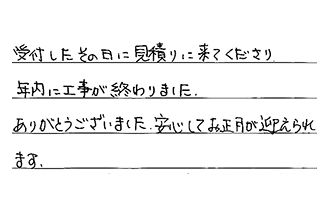 受付したその日に見積りに来てくださり
年内に工事が終わりました.
ありがとうございました.安心してお正月が迎えられ
ます.